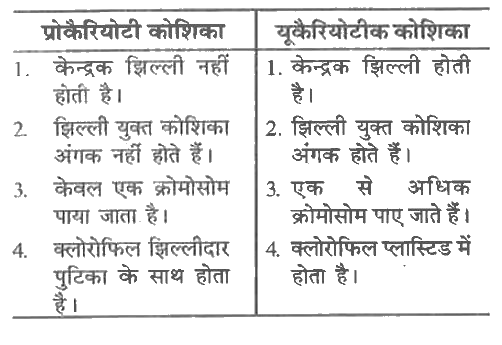 प्रोकैरियोटी कोशिका
1. केन्द्रक झिल्ली नहीं
होती है।
2. झिल्ली युक्त कोशिका
अंगक नहीं होते हैं।
3. केवल एक क्रोमोसोम
पाया जाता है।
4. क्लोरोफिल झिल्लीदार
पुटिका के साथ होता
है।
यूकैरियोटीक कोशिका
1. केन्द्रक झिल्ली होती
है।
2. झिल्ली युक्त कोशिका
अंगक होते हैं।
3. एक से अधिक
क्रोमोसोम पाए जाते हैं।
4. क्लोरोफिल प्लास्टिड में
होता है।